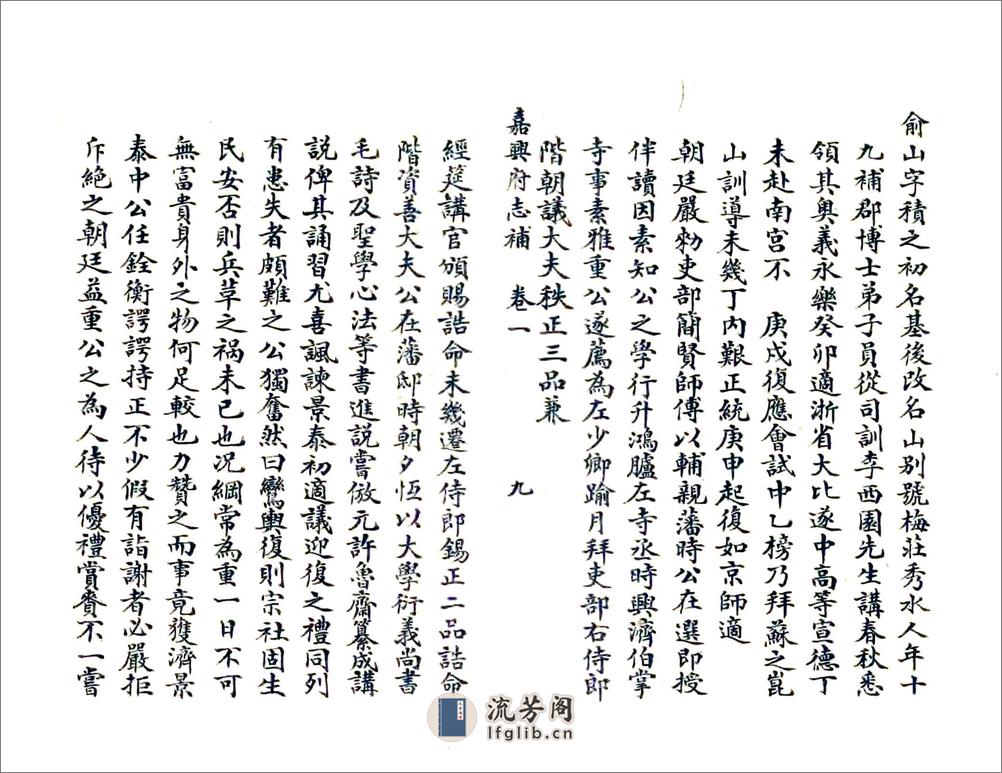 俞山字積之初名基後改名山别號梅莊秀水人年十
九補郡博士弟子員從司訓李西園先生講春秋悉
領其奥義永樂癸卯適浙省大比遂中高等宣德丁
未赴南宮不 庚戌復應會試中乙榜乃拜蘇之崑
山訓導未幾丁内艱正統庚申起復如京師適
朝廷嚴勑吏部簡賢師傅以輔親藩時公在選即授
伴讀因素知公之學行升鴻臚左寺丞時興濟伯掌
寺事素雅重公遂薦為左少卿踰月拜吏部右侍郎
階朝議大夫秩正三品兼
嘉興府志補 卷一 九
經筵講官頒賜誥命未幾遷左侍郎錫正二品誥命
階資善大夫公在藩邸時朝夕恆以大學衍義尚書
毛詩及聖學心法等書進説嘗倣元許魯齋纂成講
説俾其誦習尤喜諷諫景泰初適議迎復之禮同列
有患失者頗難之公獨奮然曰鸞輿復則宗社固生
民安否則兵草之祸未已也况綱常為重一日不可
無富貴身外之物何足較也力贊之而事竟獲濟景
泰中公任銓衡諤諤持正不少假有詣謝者必嚴拒
斥絶之朝廷益重公之為人待以優禮賞賚不一嘗
流芳阁
lfglib.cn